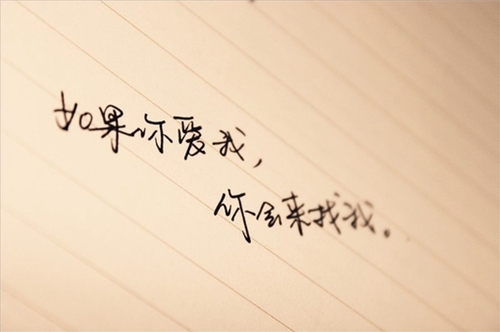 如果你爱我，
你会来找我。